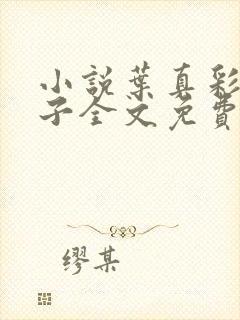 小説葉真彩
子全文免費
繆某